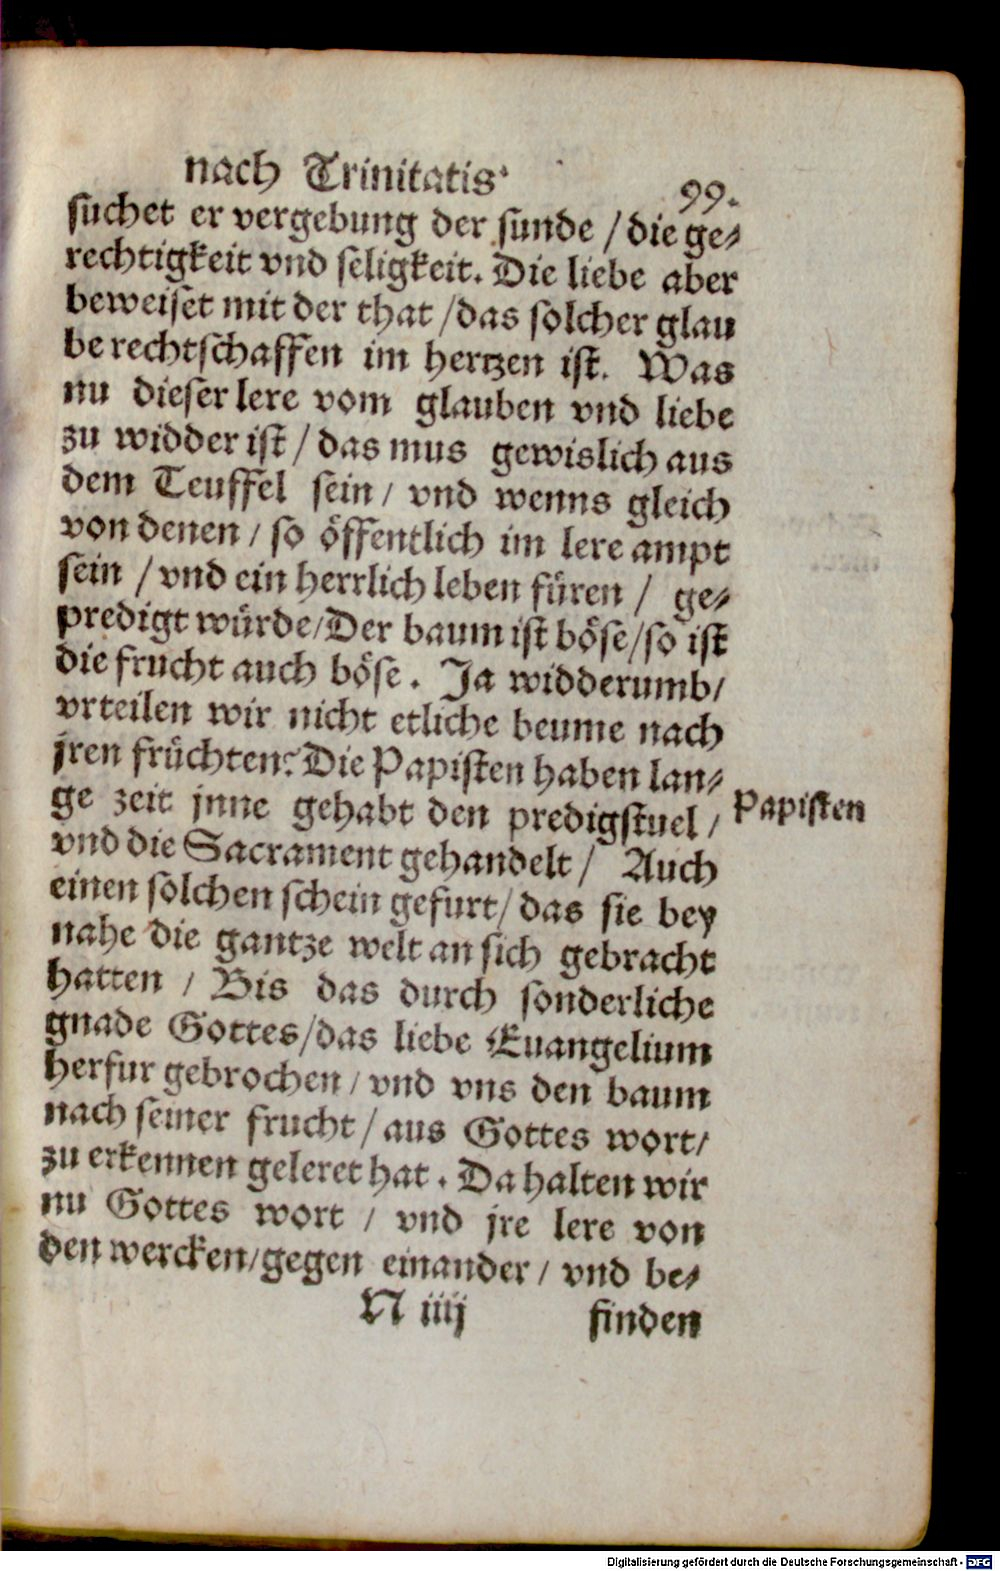 nach Trinitatis.
99.
suchet er vergebung der sunde / die ge⸗
rechtigkeit vnd seligkeit. Die liebe aber
beweiset mit der that / das solcher glau
be rechtschaffen im hertzen ist. Was
nu dieser lere vom glauben vnd liebe
zu widder ist / das mus gewislich aus
dem Teuffel sein / vnd wenns gleich
von denen / so öffentlich im lere ampt
sein / vnd ein herrlich leben füren / ge⸗
predigt würde / Der baum ist böse / so ist
die frucht auch böse. Ja widderumb /
vrteilen wir nicht etliche beume nach
jren früchten? Die Papisten haben lan⸗
ge zeit jnne gehabt den predigstuel /
Papisten
vnd die Sacrament gehandelt / Auch
einen solchen schein gefurt / das sie bey
nahe die gantze welt an sich gebracht
hatten / Bis das durch sonderliche
gnade Gottes / das liebe Euangelium
herfur gebrochen / vnd vns den baum
nach seiner frucht / aus Gottes wort /
zu erkennen geleret hat. Da halten wir
nu Gottes wort / vnd jre lere von
den wercken / gegen einander / vnd be⸗
N iiij
finden
Digitalisierung gefördert durch die Deutsche Forschungsgemeinschaft - DFG